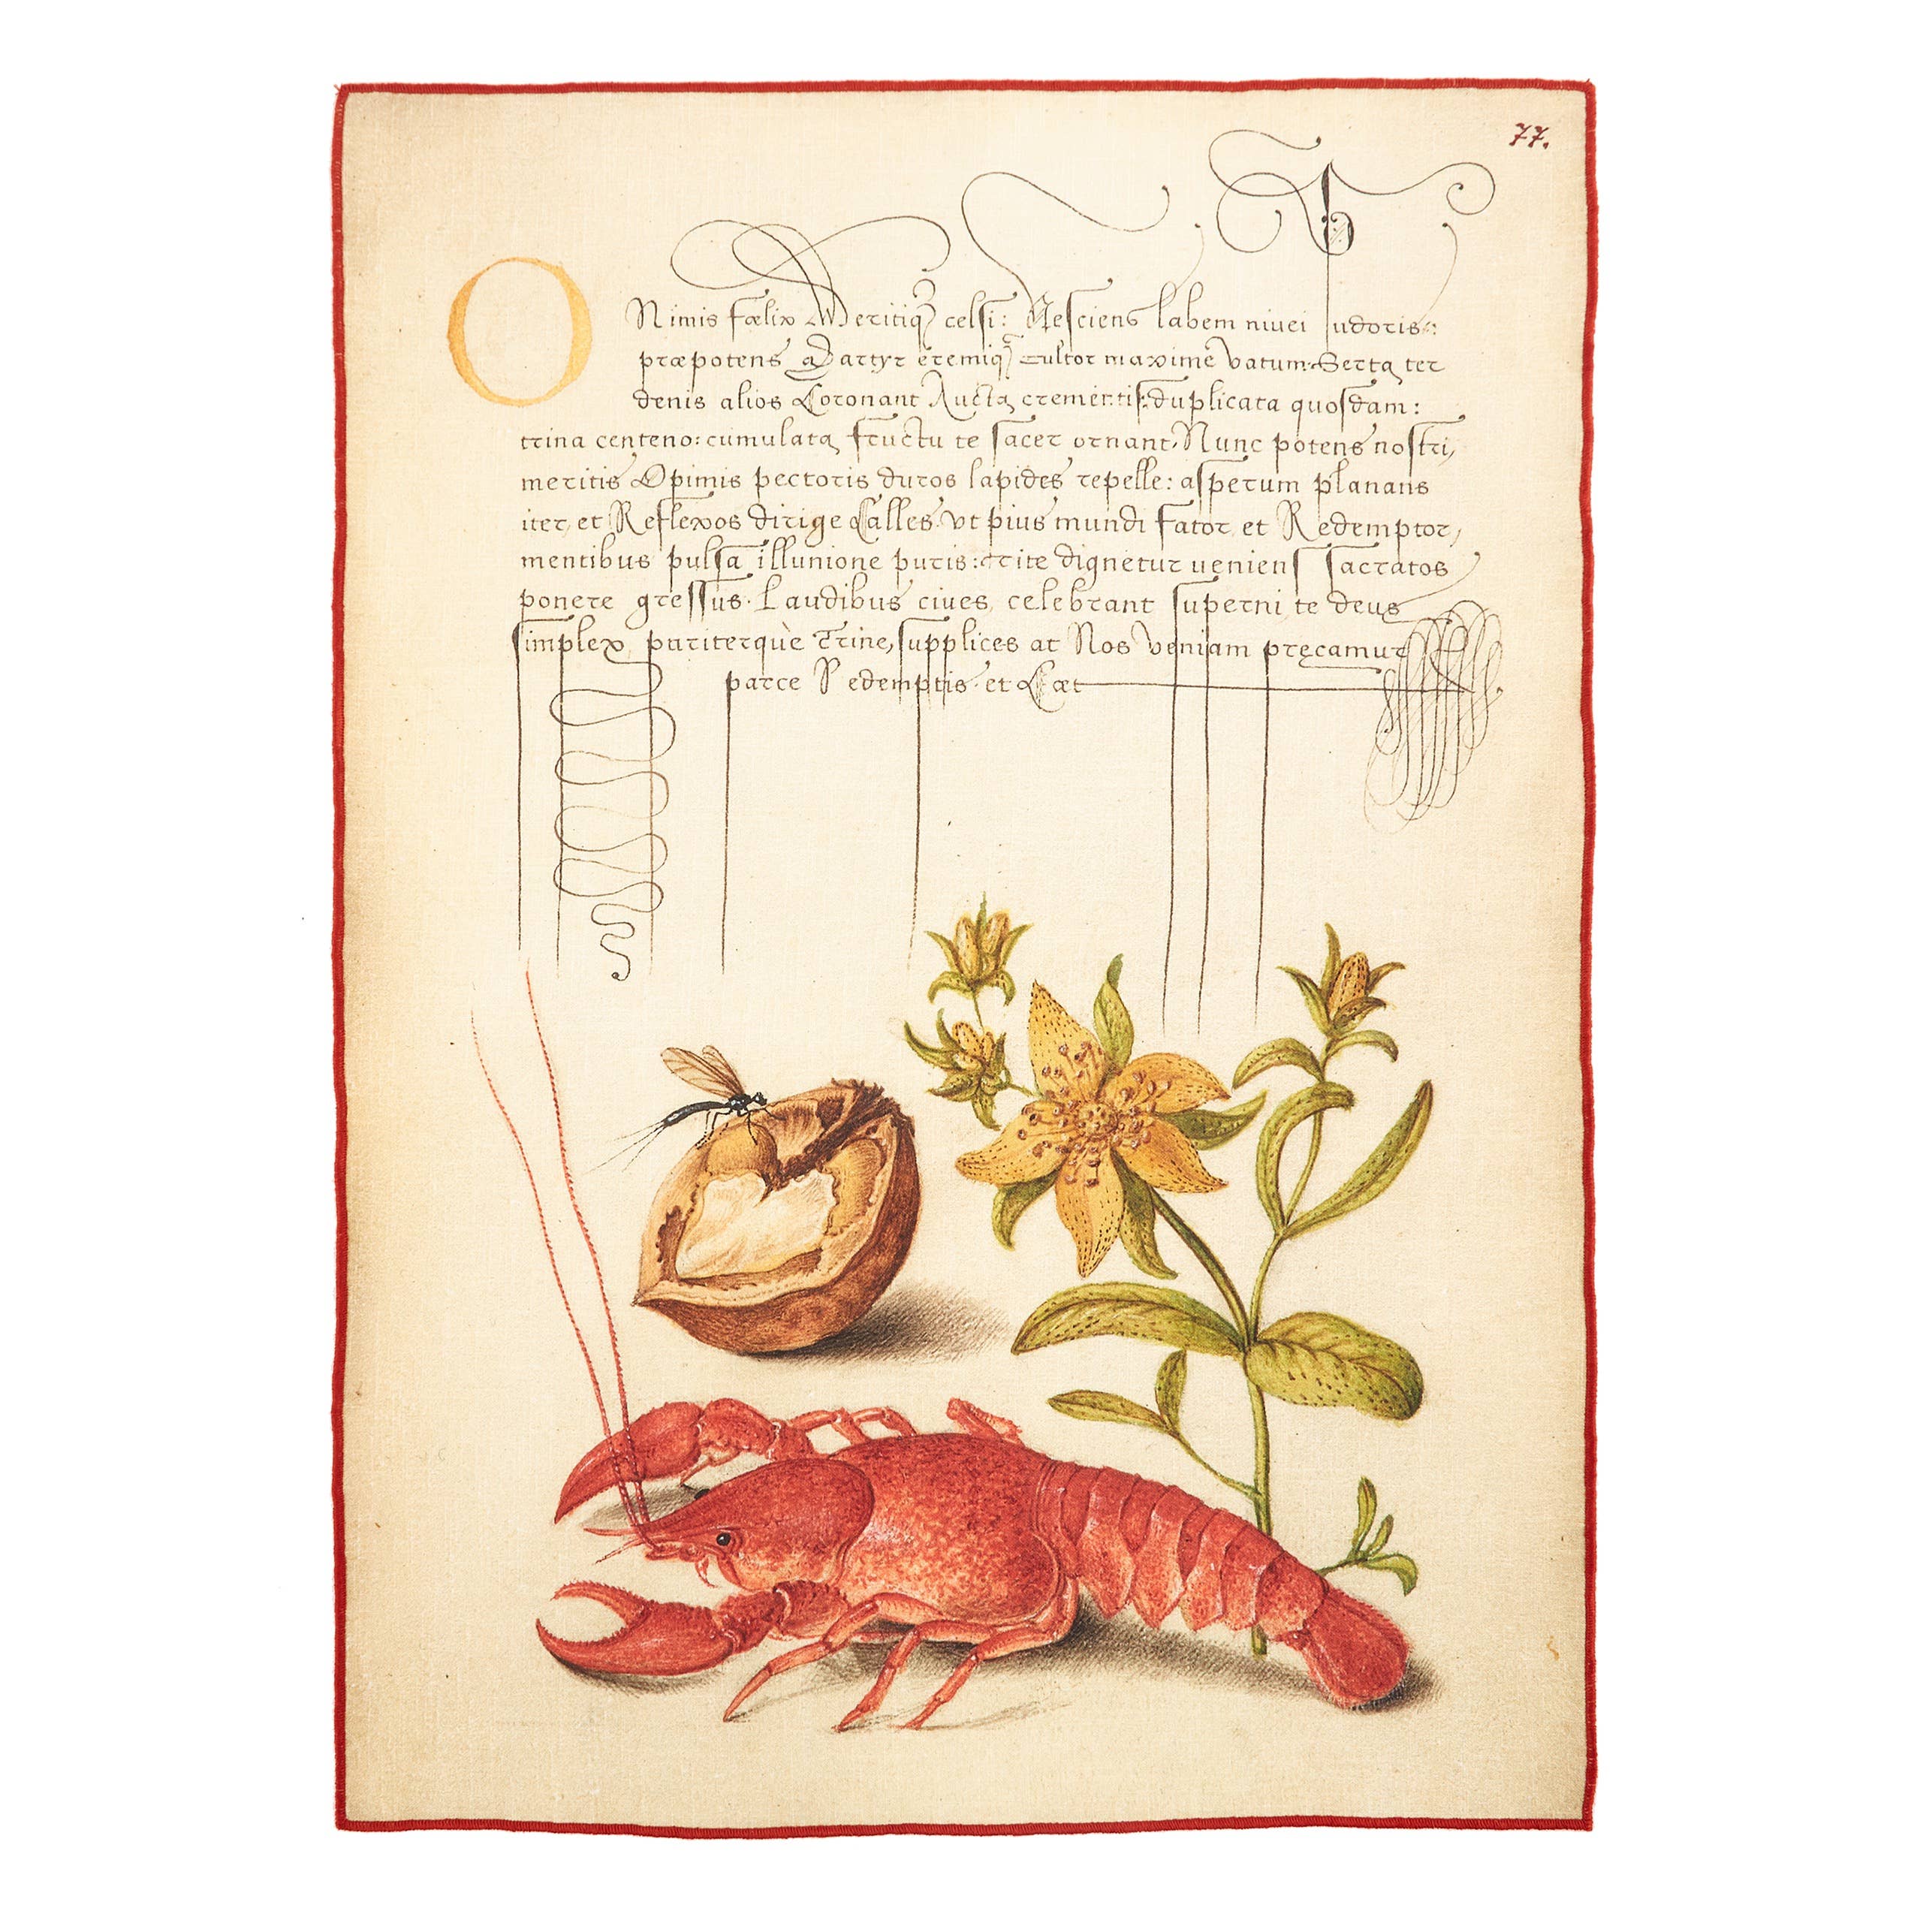 77.
O Nimis fœlix Meritiqȝ celsi: Nesciens labem niuei pudoris:
præpotens Martyr eremiqȝ cultor maxime vatum. Serta ter
denis alios Coronant Aucta crementis: duplicata quosdam:
trina centeno: cumulata fructu te sacer ornant. Nunc potens nostri,
meritis Opimis pectoris duros lapides repelle: asperum planans
iter, et Reflexos dirige Calles. Vt pius mundi sator et Redemptor,
mentibus pulsa illunione puris: rite dignetur ueniens sacratos
ponere gressus. Laudibus ciues, celebrant superni te deus
simplex, pariterquè Trine, supplices at Nos veniam pręcamur
parce Redemptis. et Cæt